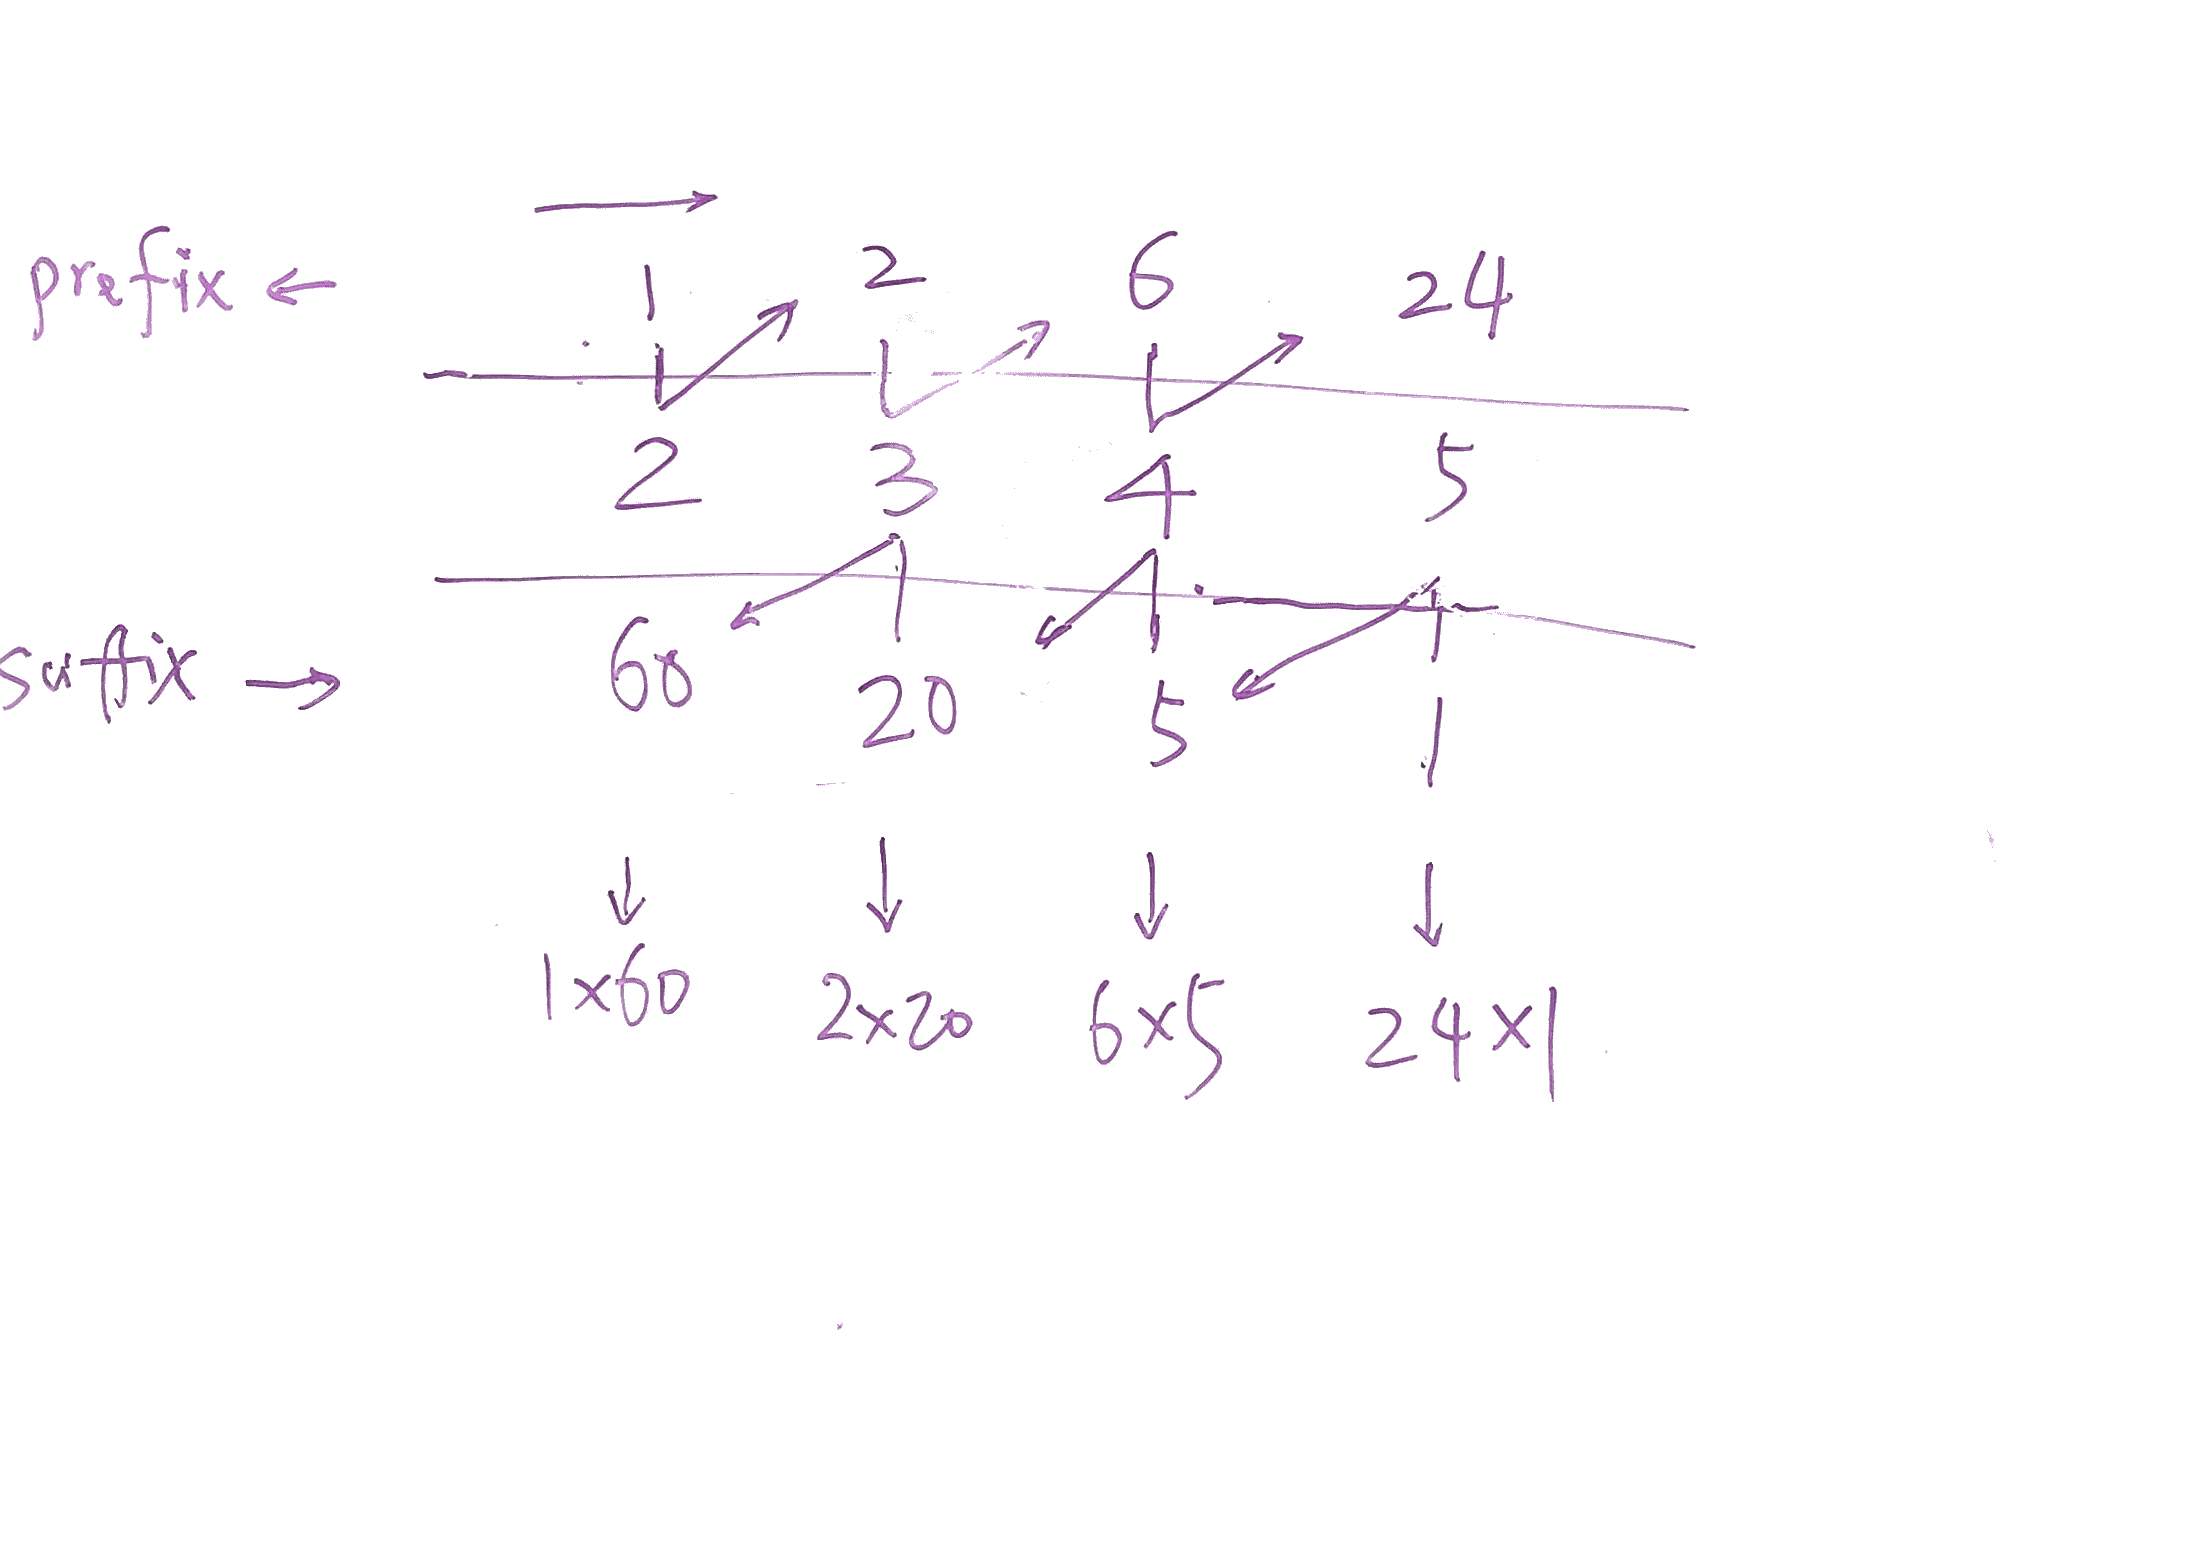 prefix ← 1 2 6 24
2 3 4 5
suffix → 60 20 5 1
1x60 2x20 6x5 24x1